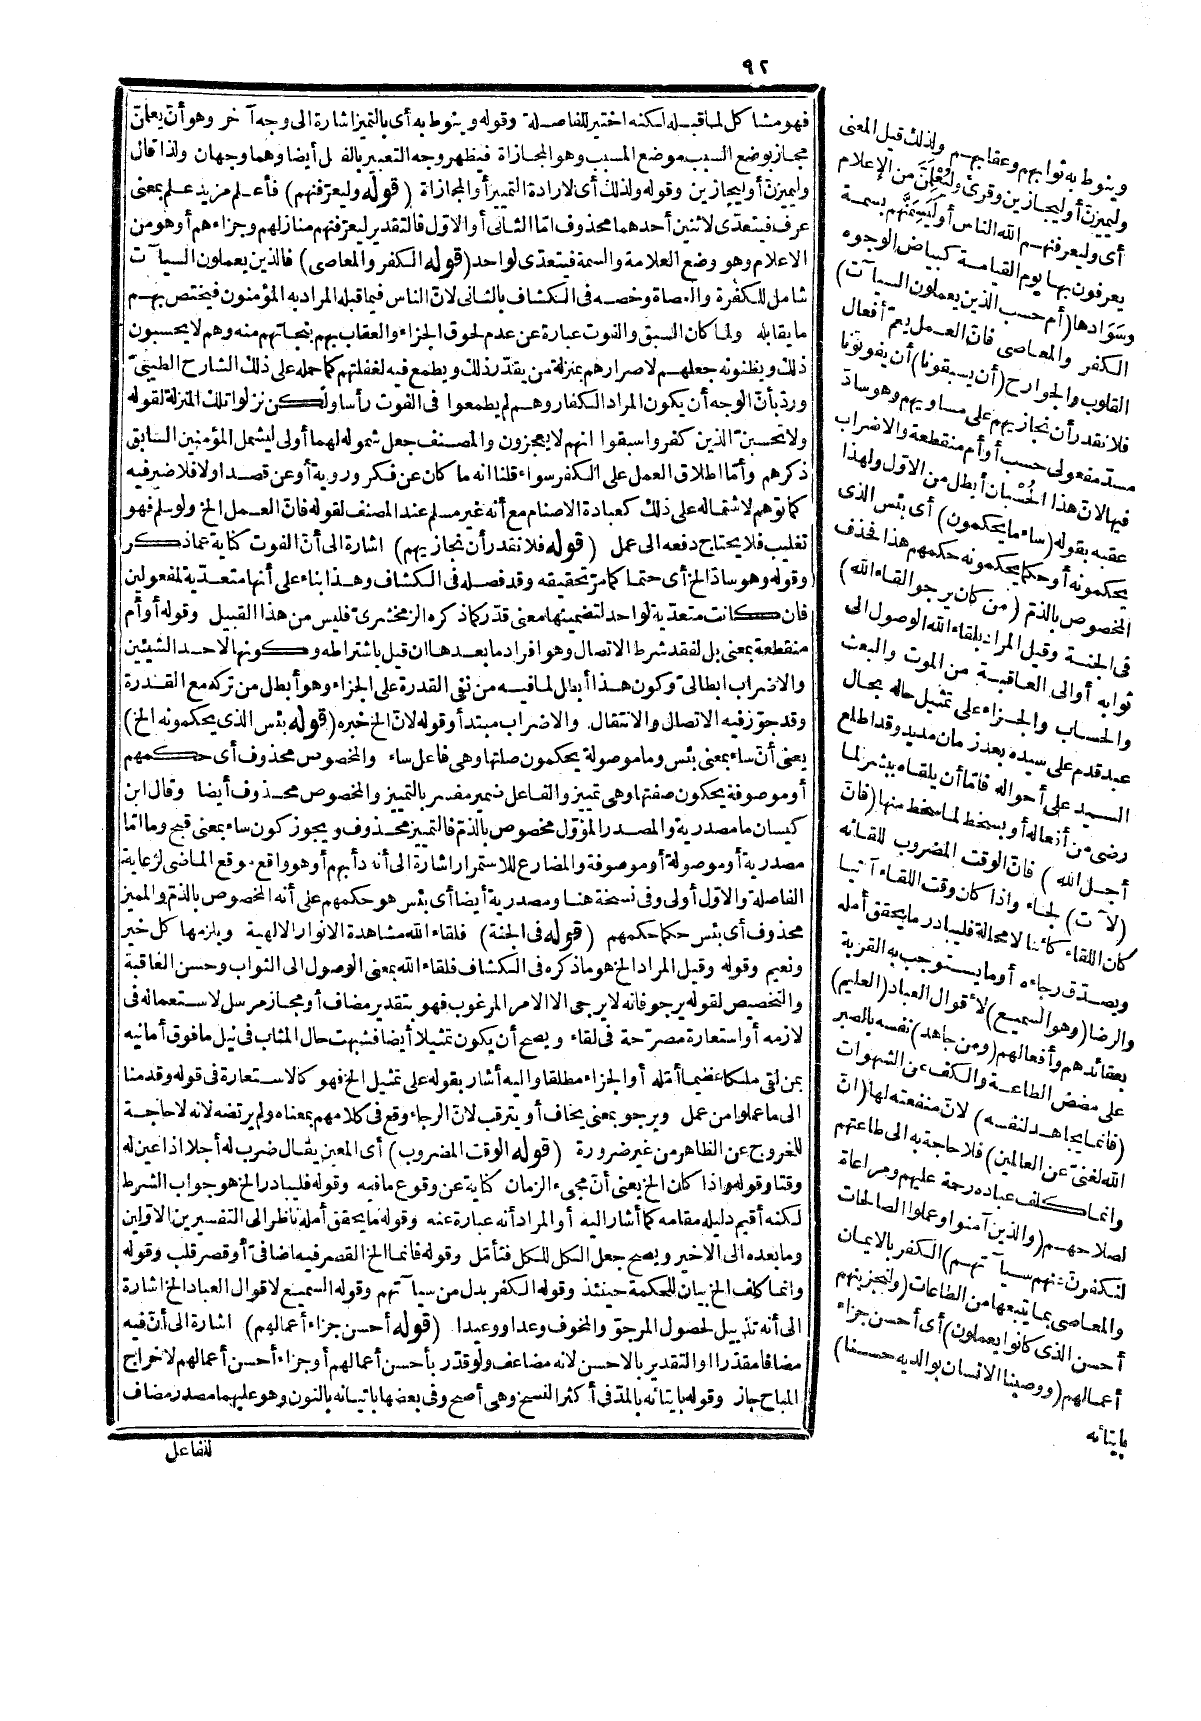 ٩٢
فهو مشاكل لما قبله لكنه اختير للفاصلة وقوله وينوط به أى بالتميز اشارة الى وجه آخر وهو أن يعلمنّ
مجاز بوضع السبب موضع المسبب وهو المجازاة فيظهر وجه التعبير بالفعل أيضا وهما وجهان ولذا قال
وليميزنّ أو ليجازين وقوله ولذلك أى لارادة التمييز أو المجازاة (قوله وليعرّفنهم) فأعلم مزيد علم بمعنى
عرف فيتعدّى لاثنين أحدهما محذوف امّا الثانى أو الاول فالتقدير ليعرّفنهم منازلهم وجزاءهم أو هو من
الاعلام وهو وضع العلامة والسمة فيتعدى لواحد (قوله الكفر والمعاصى) فالذين يعملون السيآت
شامل للكفرة والعصاة وخصه فى الكشاف بالثانى لانّ الناس فيما قبله المراد به المؤمنون فيختص بهم
ما يقابله ولما كان السبق والفوت عبارة عن عدم لحوق الجزاء والعقاب بهم بنجاتهم منه وهم لا يحسبون
ذلك ويظنونه جعلهم لاصرارهم بمنزلة من يقدر ذلك ويطمع فيه لغفلتهم كما حمله على ذلك الشارح الطيبىّ
وردّ بأنّ الوجه أن يكون المراد الكفار وهم لم يطمعوا فى الفوت رأسا ولكن نزلوا تلك المنزلة لقوله
ولا تحسبنّ الذين كفروا سبقوا انهم لا يعجزون والمصنف جعل شموله لهما أولى ليشمل المؤمنين السابق
ذكرهم وأمّا اطلاق العمل على الكفر سواء قلنا انه ما كان عن فكر وروية أو عن قصد اولا فلا ضير فيه
كما توهم لاشتماله على ذلك كعبادة الاصنام مع أنه غير مسلم عند المصنف لقوله فانّ العمل الخ ولو سلم فهو
تغليب فلا يحتاج دفعه الى عمل (قوله فلا نقدر أن نجازيهم) اشارة الى أنّ الفوت كناية عما ذكر
وقوله وهو سادّ الخ أى حتما كما مرّ تحقيقه وقد فصله فى الكشاف وهذا بناء على أنها متعدّية لمفعولين
فان كانت متعدية لواحد لتضمينها معنى قدّر كما ذكره الزمخشرىّ فليس من هذا القبيل وقوله أو أم
منقطعة بمعنى بل لفقد شرط الاتصال وهو افراد ما بعدها ان قيل باشتراطه وكونها لاحد الشيئين
والاضراب ابطالىّ وكون هذا أبطل لما فيه من نفى القدرة على الجزاء وهو أبطل من تركه مع القدرة
وقد جوّز فيه الاتصال والانتقال. والاضراب مبتدأ وقوله لانّ الخ خبره (قوله بئس الذى يحكمونه الخ)
يعنى أنّ ساء بمعنى بئس وما موصولة يحكمون صلتها وهى فاعل ساء والمخصوص محذوف أى حكمهم
أو موصوفة يحكمون صفتها وهى تمييز والفاعل ضمير مفسر بالتمييز والمخصوص محذوف أيضا وقال ابن
كيسان ما مصدرية والمصدر المؤوّل مخصوص بالذمّ فالتمييز محذوف ويجوز كون ساء بمعنى قبح وما امّا
مصدرية أو موصولة أو موصوفة والمضارع للاستمرار اشارة الى أنه دأبهم أو هو واقع موقع الماضى لرعاية
الفاصلة والاول أولى وفى نسخة هنا ومصدرية أيضا أى بئس هو حكمهم على أنه المخصوص بالذمّ والمميز
محذوف أى بئس حكما حكمهم (قوله فى الجنة) فلقاء الله مشاهدة الانوار الالهية ويلزمها كل خير
ونعيم وقوله وقيل المراد الخ هو ما ذكره فى الكشاف فلقاء الله بمعنى الوصول الى الثواب وحسن العاقبة
والتخصيص لقوله يرجو فانه لا يرجى الا الامر المرغوب فهو بتقدير مضاف أو مجاز مرسل لاستعماله فى
لازمه أو استعارة مصرّحة فى لقاء ويصح أن يكون تمثيلا أيضا فشبهت حال المثاب فى نيل ما فوق أمانيه
بمن لقى ملكا عظيما أمّله أو الجزاء مطلقا واليه أشار بقوله على تمثيل الخ فهو كالاستعارة فى قوله وقدمنا
الى ما عملوا من عمل ويرجو بمعنى يخاف أو يترقب لانّ الرجاء وقع فى كلامهم بمعناه ولم يرتضه لانه لا حاجة
للخروج عن الظاهر من غير ضرورة (قوله الوقت المضروب) أى المعين يقال ضرب له أجلا اذا عين له
وقتا وقوله واذا كان الخ يعنى أنّ مجىء الزمان كناية عن وقوع ما فيه وقوله فليبادر الخ هو جواب الشرط
لكنه أقيم دليله مقامه كما أشار اليه أو المراد أنه عبارة عنه وقوله ما يحقق أمله ناظر الى التفسيرين الاولين
وما بعده الى الاخير ويصح جعل الكل للكل فتأمل وقوله فانما الخ القصر فيه اضافىّ أو قصر قلب وقوله
وانما كلف الخ بيان للحكمة حينئذ وقوله الكفر بدل من سيآتهم وقوله السميع لاقوال العباد الخ اشارة
الى أنه تذييل لحصول المرجوّ والمخوف وعدا ووعيدا (قوله أحسن جزاء أعمالهم) اشارة الى أنّ فيه
مضافا مقدّرا والتقدير بالاحسن لانه مضاعف ولو قدّر بأحسن أعمالهم أو جزاء أحسن أعمالهم لاخراج
المباح جاز وقوله بايتائه بالمدّ فى أكثر النسخ وهى أصح وفى بعضها باتيانه بالنون وهو عليهما مصدر مضاف
للفاعل
وينوط به ثوابهم وعقابهم ولذلك قيل المعنى
وليميزنّ أو ليجازين وقرئ ولَيُعْلِمَنَّ من الإعلام
أى وليعرّفنهم الله الناس أو لَيَسِمَنَّهم بسمة
يعرفون بها يوم القيامة كبياض الوجوه
وسَوَادها (أم حسب الذين يعملون السيآت)
الكفر والمعاصى فانّ العمل يعم أفعال
القلوب والجوارح (أن يسبقونا) أن يفوتونا
فلا نقدر أن نجازيهم على مساويهم وهو سادّ
مسدّ مفعولى حسب أو أم منقطعة والاضراب
فيها لانّ هذا الحُسْبان أبطل من الاوّل ولهذا
عقبه بقوله (ساء ما يحكمون) أى بئس الذى
يحكمونه أو حكما يحكمونه حكمهم هذا فحذف
المخصوص بالذم (من كان يرجو لقاء الله)
فى الجنة وقيل المراد بلقاء الله الوصول الى
ثوابه أو الى العاقبة من الموت والبعث
والحساب والجزاء على تمثيل حاله بحال
عبد قدم على سيده بعد زمان مديد وقد اطلع
السيد على أحواله فامّا أن يلقاه ببشر لما
رضى من أفعاله أو بسخط لما سخط منها (فانّ
أجل الله) فانّ الوقت المضروب للقائه
(لآت) لجاء واذا كان وقت اللقاء آتيا
كان اللقاء كائنا لا محالة فليبادر ما يحقق أمله
ويصدّق رجاءه أو ما يستوجب به القربة
والرضا (وهو السميع) لأقوال العباد (العليم)
بعقائدهم وأفعالهم (ومن جاهد) نفسه بالصبر
على مضض الطاعة والكف عن الشهوات
(فانما يجاهد لنفسه) لانّ منفعته لها (انّ
الله لغنىّ عن العالمين) فلا حاجة به الى طاعتهم
وانما كلف عباده رحمة عليهم ومراعاة
لصلاحهم (والذين آمنوا وعملوا الصالحات
لنكفرنّ عنهم سيآتهم) الكفر بالايمان
والمعاصى بما يتبعها من الطاعات (ولنجزينهم
أحسن الذى كانوا يعملون) أى أحسن جزاء
أعمالهم (ووصينا الانسان بوالديه حسنا)
بايتائه